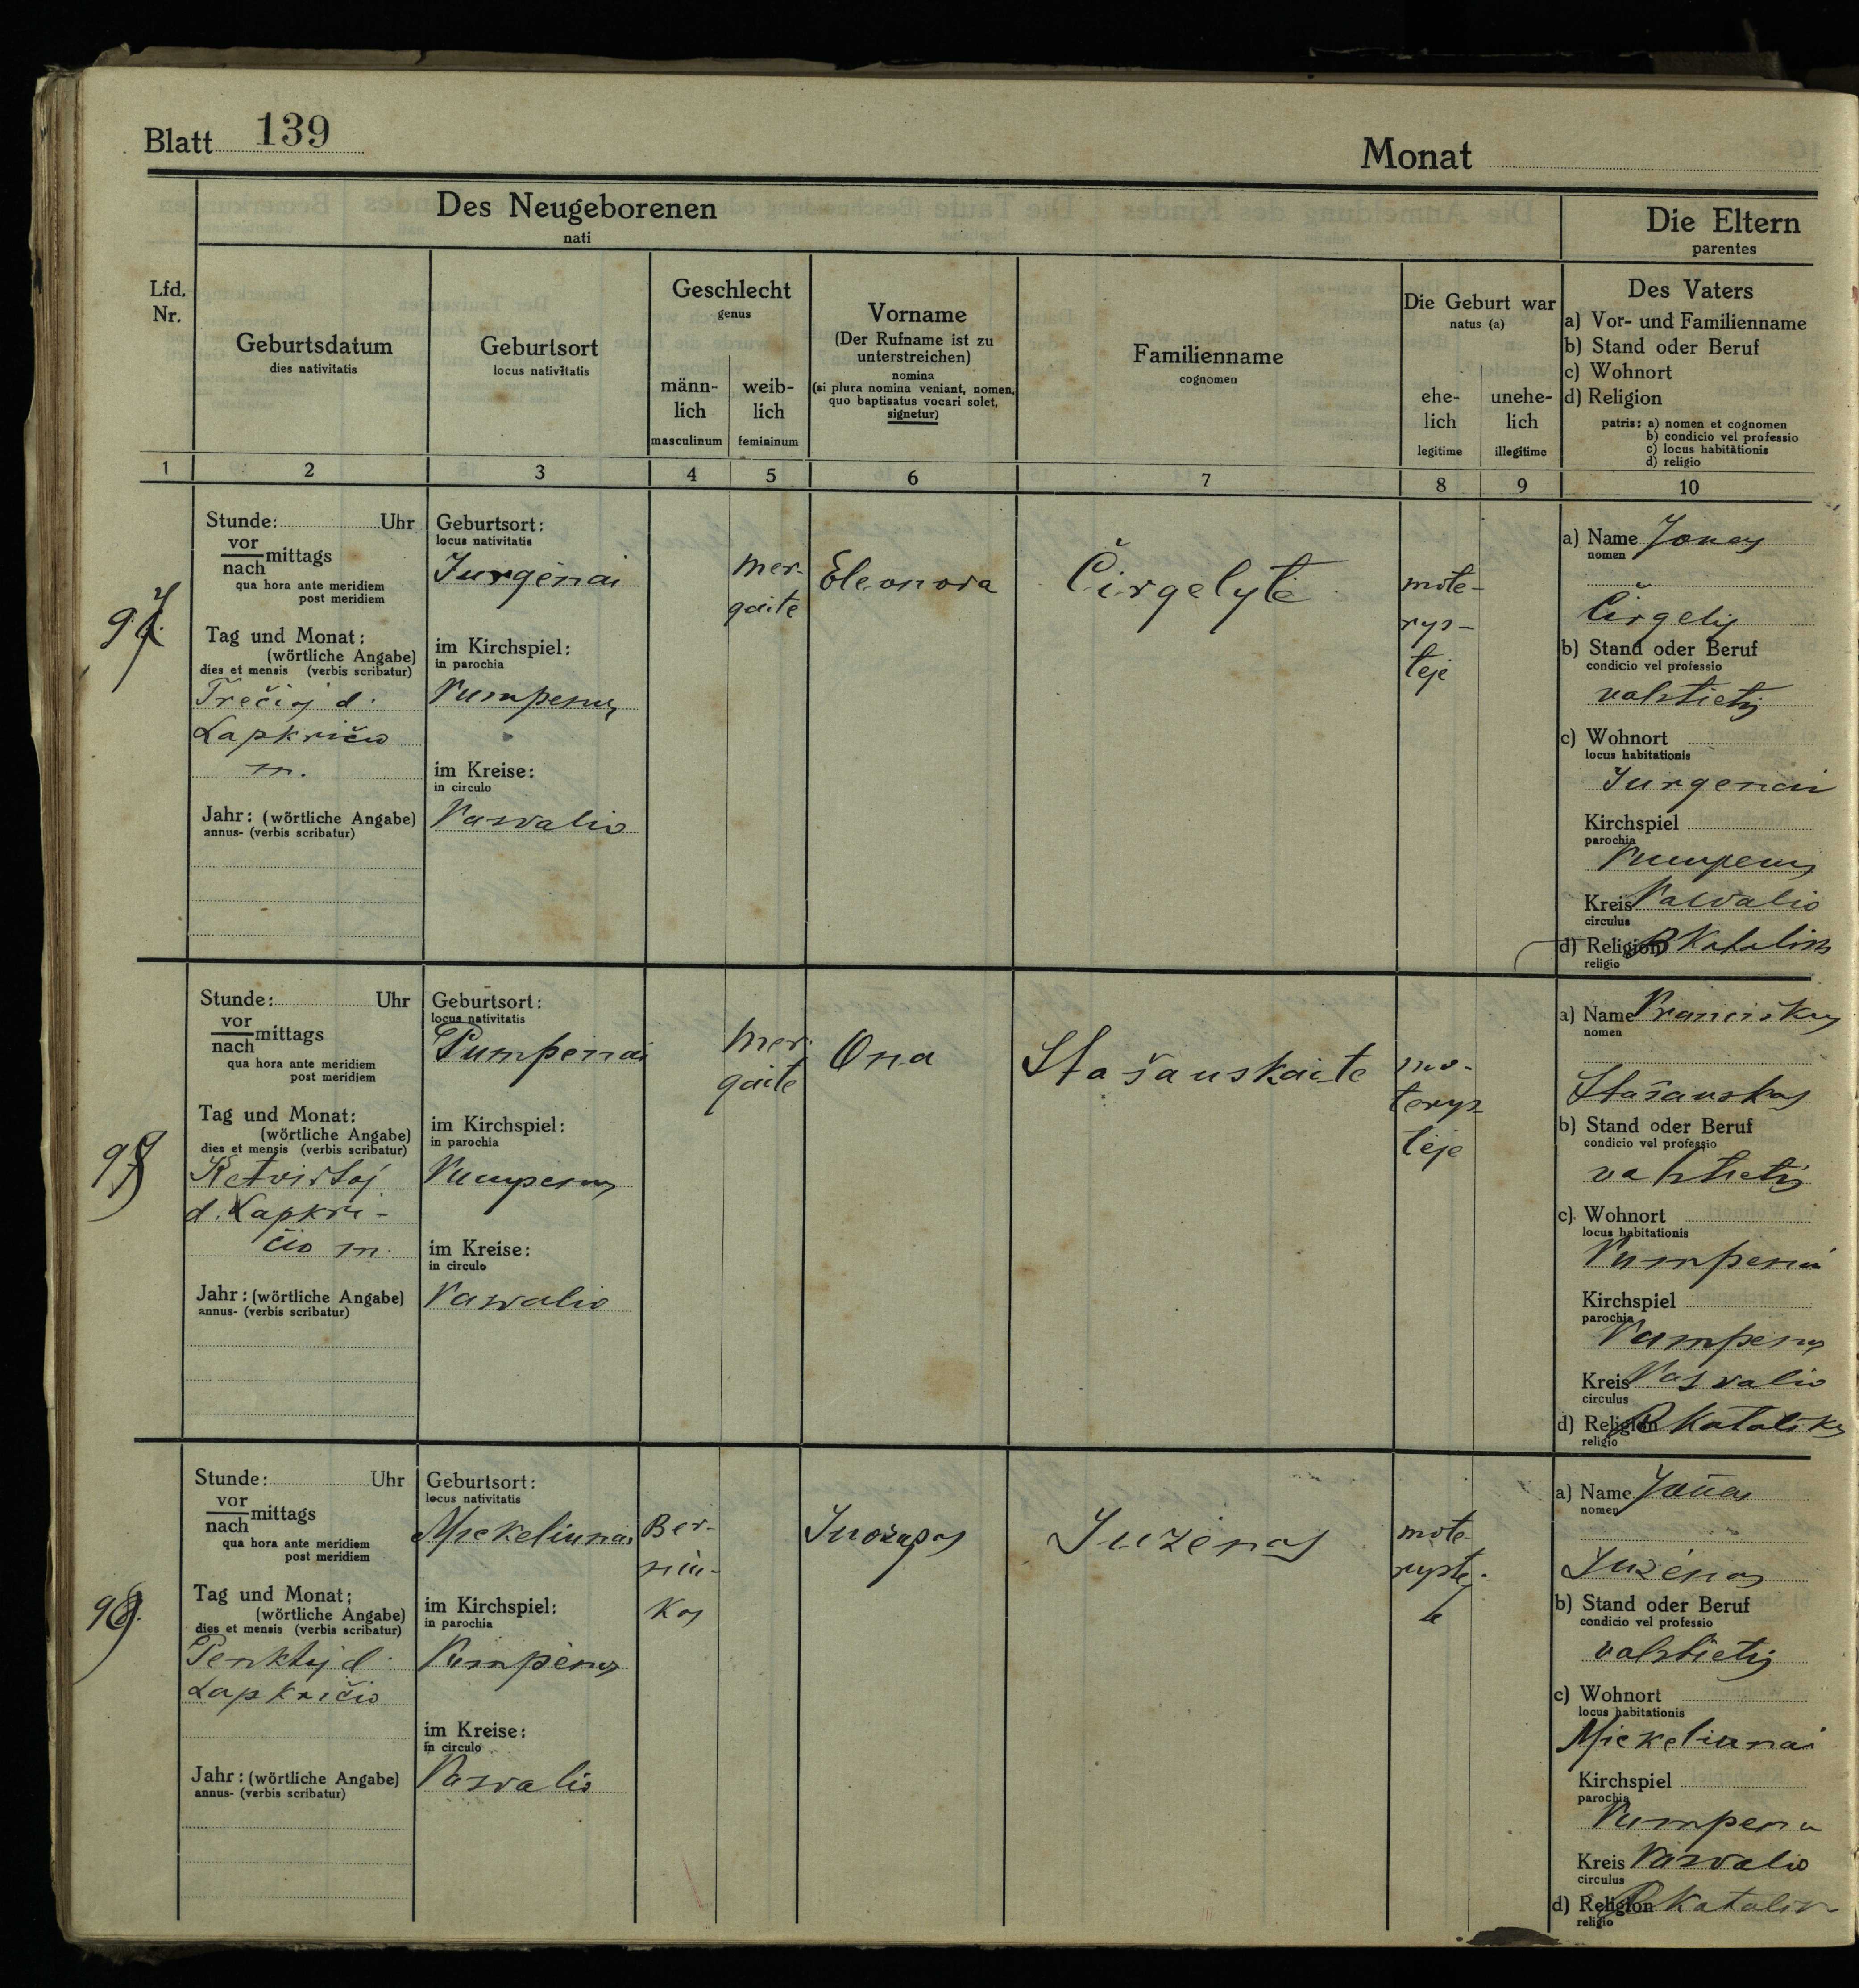 Blatt 139
Monat
Des Neugeborenen
nati
Die Eltern
parentes
Lfd.
Nr.
Geburtsdatum
dies nativitatis
Geburtsort
locus nativitatis
Geschlecht
genus
männ-
lich
masculinum
weib-
lich
femininum
Vorname
(Der Rufname ist zu
unterstreichen)
nomina
(si plura nomina veniant, nomen,
quo baptisatus vocari solet,
signetur)
Familienname
cognomen
Die Geburt war
natus (a)
ehe-
lich
legitime
unehe-
lich
illegitime
Des Vaters
a) Vor- und Familienname
b) Stand oder Beruf
c) Wohnort
d) Religion
patris: a) nomen et cognomen
b) condicio vel professio
c) locus habitationis
d) religio
1 2 3 4 5 6 7 8 9 10
Stunde: Uhr
vor
nach mittags
qua hora ante meridiem
post meridiem
Tag und Monat:
(wörtliche Angabe)
dies et mensis (verbis scribatur)
Trečioj d.
Lapkričio
m.
Jahr: (wörtliche Angabe)
annus- (verbis scribatur)
Geburtsort:
locus nativitatis
Jurgėnai
im Kirchspiel:
in parochia
Pumpenų
im Kreise:
in circulo
Pasvalio
mer-
gaitė
Eleonora
Čirgelytė
mote-
rys-
tėje
a) Name Jonas
nomen
Čirgelis
b) Stand oder Beruf
condicio vel professio
valstietis
c) Wohnort
locus habitationis
Jurgenai
Kirchspiel
parochia
Pumpenų
Kreis Pasvalio
circulus
d) Religion R Katalikas
religio
Stunde: Uhr
vor
nach mittags
qua hora ante meridiem
post meridiem
Tag und Monat:
(wörtliche Angabe)
dies et mensis (verbis scribatur)
Ketvirtoj
d. Lapkri-
čio m.
Jahr: (wörtliche Angabe)
annus- (verbis scribatur)
Geburtsort:
locus nativitatis
Pumpėnai
im Kirchspiel:
in parochia
Pumpenų
im Kreise:
in circulo
Pasvalio
mer-
gaitė
Ona
Stašauskaitė
mo-
terys-
tėje
a) Name Pranciskus
nomen
Stašauskas
b) Stand oder Beruf
condicio vel professio
valstietis
c) Wohnort
locus habitationis
Pumpenai
Kirchspiel
parochia
Pumpenų
Kreis Pasvalio
circulus
d) Religion R Katalikas
religio
Stunde: Uhr
vor
nach mittags
qua hora ante meridiem
post meridiem
Tag und Monat;
(wörtliche Angabe)
dies et mensis (verbis scribatur)
Penktoj d.
Lapkričio
Jahr: (wörtliche Angabe)
annus- (verbis scribatur)
Geburtsort:
locus nativitatis
Mickeliunai
im Kirchspiel:
in parochia
Pumpėnų
im Kreise:
in circulo
Pasvalio
Ber-
niu-
kas
Juozapas
Juzėnas
mote-
rystėj-
e
a) Name Jonas
nomen
Juzėnas
b) Stand oder Beruf
condicio vel professio
valstietis
c) Wohnort
locus habitationis
Mickeliunai
Kirchspiel
parochia
Pumpenų
Kreis Pasvalio
circulus
d) Religion R Katalikas
religio